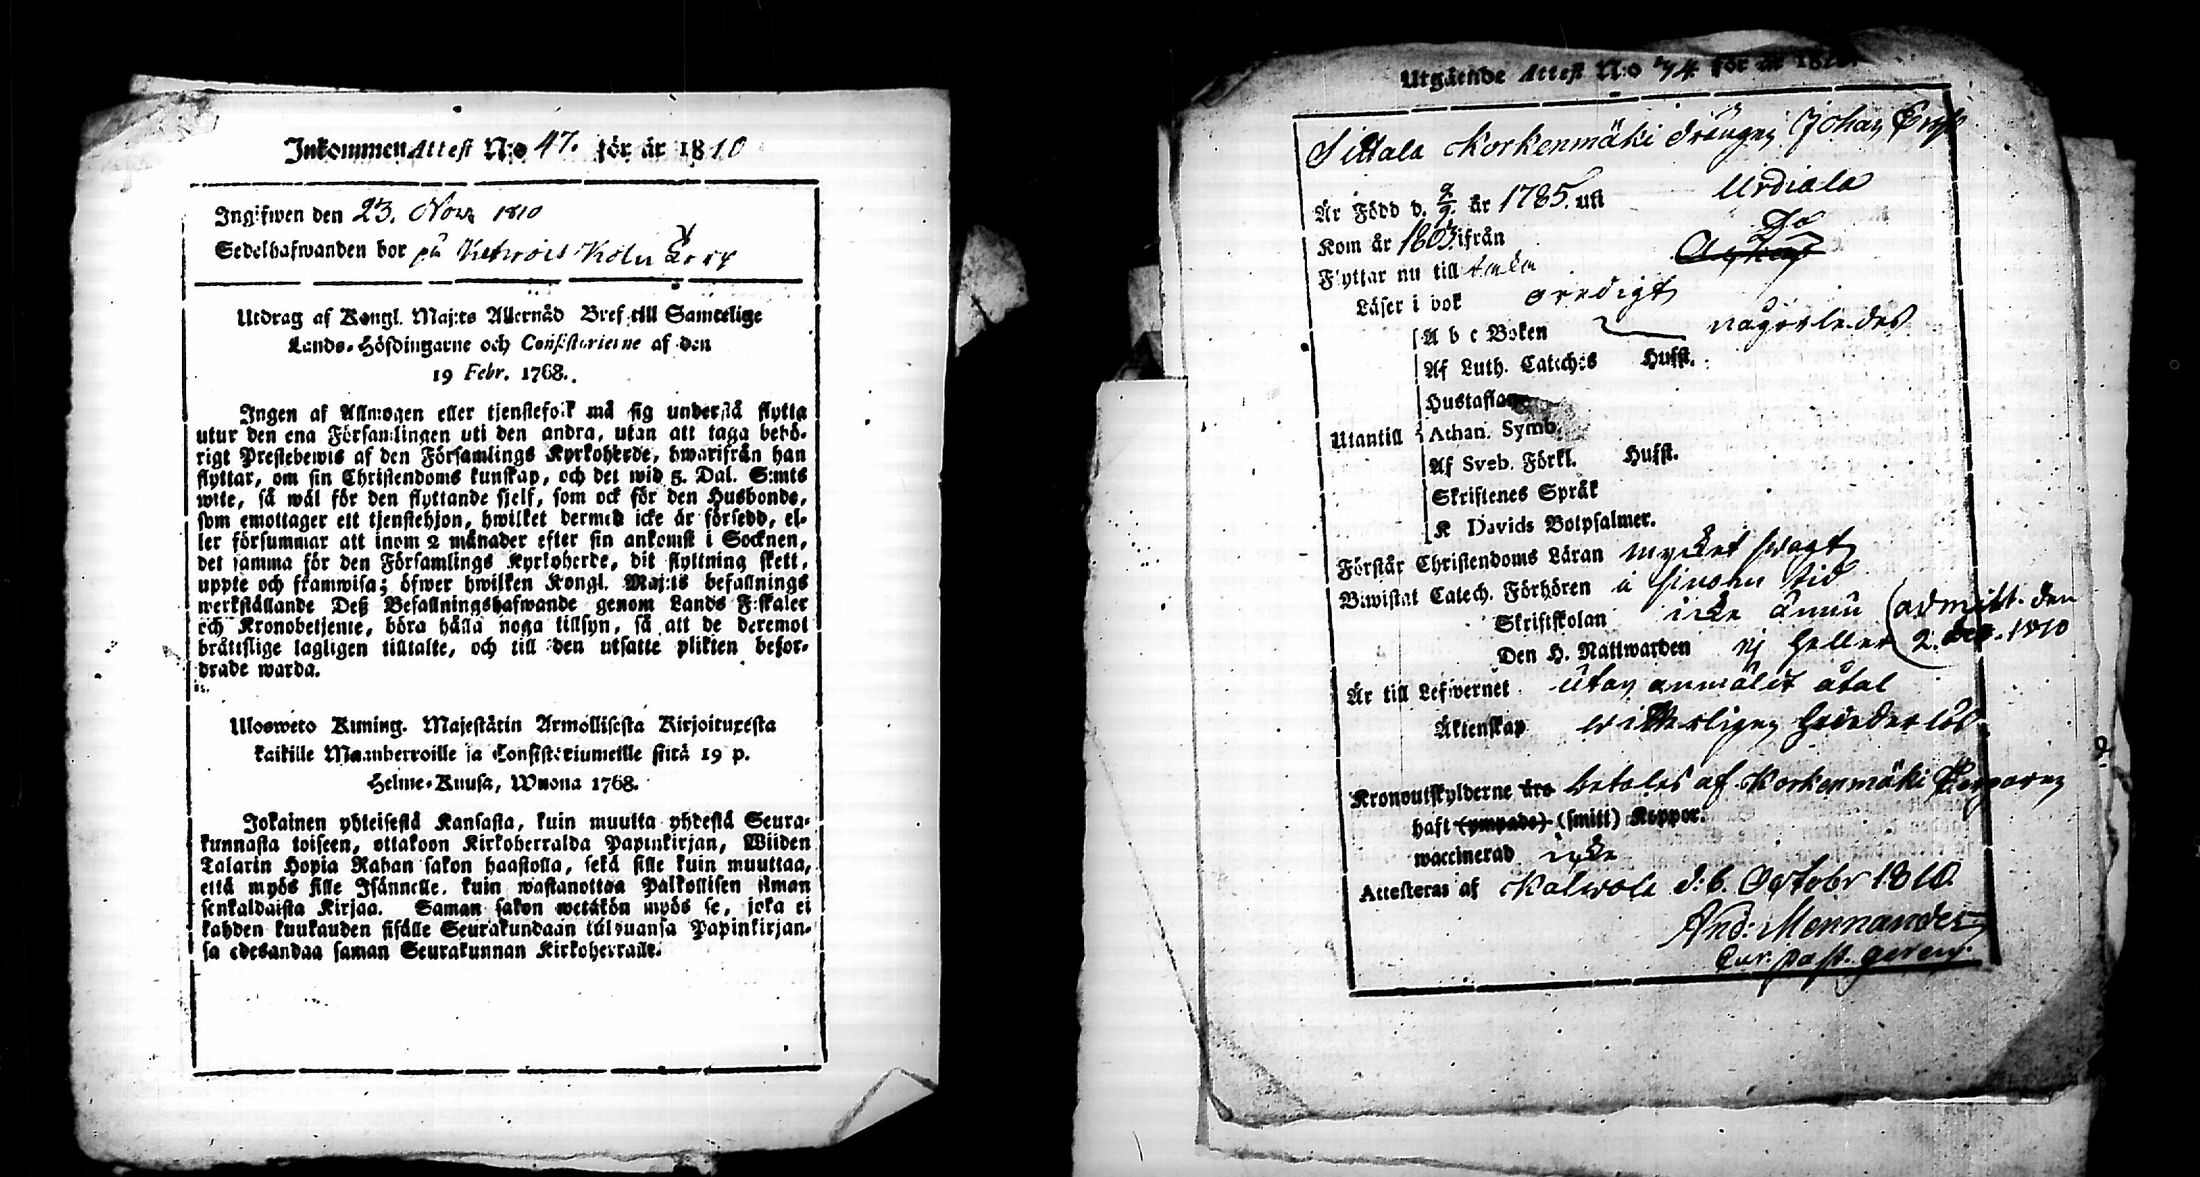 Inkommen Attest N:o 47. för år 1810
Ingifwen den 23. Nov. 1810
Sedelhafwanden bor på
Utdrag af Kongl. Maj:ts Allernåd Bref till Samtelige
Lands-Höfdingarne och Consistorierne af den
19 Febr. 1768.
Ingen af Allmogen eller tjenstefolk må sig understå flytta
utur den ena Församlingen uti den andra, utan att taga behö-
rigt Prestebewis af den Församlings Kyrkoherde, hwarifrån han
flyttar, om sin Christendoms kunskap, och det wid 5. Dal. S:mts
wite, så wäl för den flyttande sjelf, som ock för den Husbonde,
som emottager ett tjenstehjon, hwilket dermed icke är försedd, el-
ler försummar att inom 2 månader efter sin ankomst i Socknen,
det samma för den Församlings Kyrkoherde, dit flyttning skett,
uppte och framwisa; öfwer hwilken Kongl. Maj:ts befallnings
werkställande Deß Befallningshafwande genom Lands Fiskaler
och Kronobetjente, böra hålla noga tillsyn, så att de deremot
brättslige lagligen tilltalte, och till den utsatte plikten befor-
drade warda.
Ulosweto Kuning. Majestätin Armollisesta Kirjoituxesta
kaikille Maanherroille ja Consistoriumeille siitä 19 p.
Helme-Kuusa, Wuona 1768.
Jokainen yhteisestä Kansasta, kuin muutta yhdestä Seura-
kunnasta toiseen, ottakoon Kirkoherralda Papinkirjan, Wiiden
Talarin Hopia Rahan sakon haastolla, sekä sille kuin muuttaa,
että myös sille Isännelle, kuin wastanottaa Palkollisen ilman
senkaldaista Kirjaa. Saman sakon wetäkön myös se, joka ei
kahden kuukauden sisälle Seurakundaan tulduansa Papinkirjan-
sa edesandaa saman Seurakunnan Kirkoherralle.
Utgående Attest N:o 74 för år 18
Sittala Korkenmäki drängen Johan
Är Född d. år 1785. uti Urdiala
Kom år ifrån Do
Flyttar nu till
Läser i bok oredigt
A b c Boken någorledes
Af Luth. Cateches Hufst.
Hustaflan
Utantill Athan. Symb.
Af Sveb. Förkl. Hufst.
Skriftenes Språk
K Davids Botpsalmer.
Förstår Christendoms Läran mycket swagt
Biwistat Catech. Förhören i sinom tid
Skriftskolan icke ännu (admitt. den
Den H. Nattwarden ej heller 2. Dec. 1810
Är till Lefwernet utan anmält åtal
Äktenskap witterligen hinderlös
Kronoutskylderne äro betales af Korkenmäki
haft (ympade) (smitt) Koppor.
waccinerad icke
Attesteras af Kalwola d: 6. Octobr 1810.
And: Mennander
Cur. past. gerens.